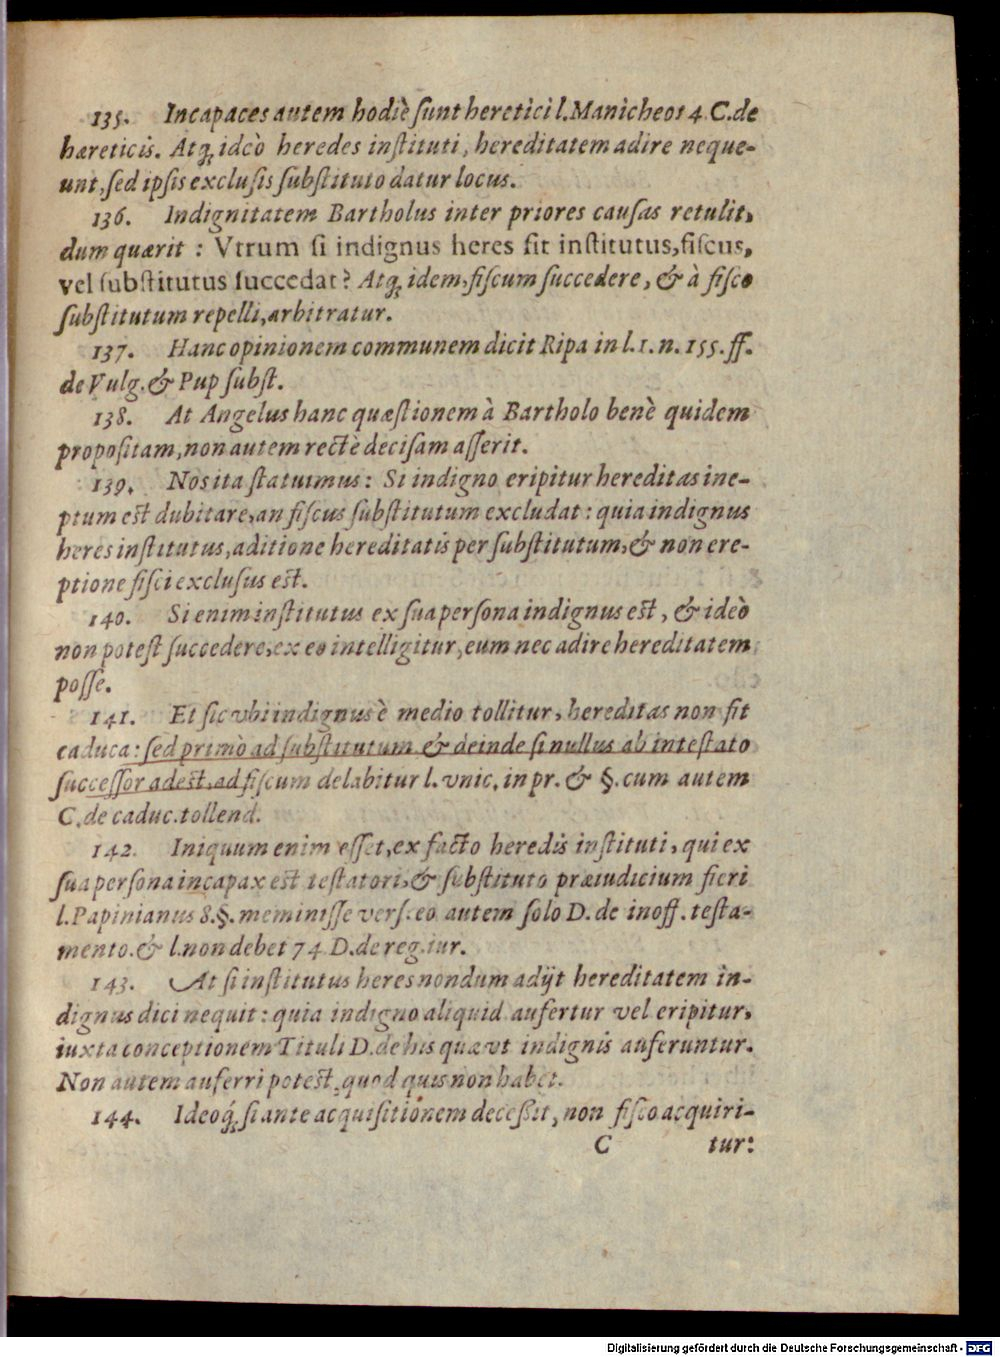 135. Incapaces autem hodiè sunt heretici l. Manicheos 4 C. de
hæreticis. Atq; ideò heredes instituti, hereditatem adire neque-
unt, sed ipsis exclusis substituto datur locus.
136. Indignitatem Bartholus inter priores causas retulit,
dum quærit : Vtrum si indignus heres sit institutus, fiscus,
vel substitutus succedat? Atq; idem, fiscum succedere, & à fisco
substitutum repelli, arbitratur.
137. Hanc opinionem communem dicit Ripa in l. 1. n. 155. ff.
de Vulg. & Pup subst.
138. At Angelus hanc quæstionem à Bartholo benè quidem
propositam, non autem rectè decisam asserit.
139. Nos ita statuimus : Si indigno eripitur hereditas ine-
ptum est dubitare, an fiscus substitutum excludat : quia indignus
heres institutus, aditione hereditatis per substitutum, & non ere-
ptione fisci exclusus est.
140. Si enim institutus ex sua persona indignus est, & ideò
non potest succedere, ex eo intelligitur, eum nec adire hereditatem
posse.
141. Et sic vbi indignus è medio tollitur, hereditas non fit
caduca : sed primò ad substitutum & deinde si nullus ab intestato
successor adest, ad fiscum delabitur l. vnic. in pr. & §. cum autem
C. de caduc. tollend.
142. Iniquum enim esset, ex facto heredis instituti, qui ex
sua persona incapax est testatori, & substituto præiudicium fieri
l. Papinianus 8. §. meminisse vers. eo autem solo D. de inoff. testa-
mento. & l. non debet 74 D. de reg. iur.
143. At si institutus heres nondum adijt hereditatem in-
dignus dici nequit : quia indigno aliquid aufertur vel eripitur,
iuxta conceptionem Tituli D. de his quæ vt indignis auferuntur.
Non autem auferri potest, quod quis non habet.
144. Ideoq́; si ante acquisitionem decessit, non fisco acquiri-
C tur:
Digitalisierung gefördert durch die Deutsche Forschungsgemeinschaft - DFG